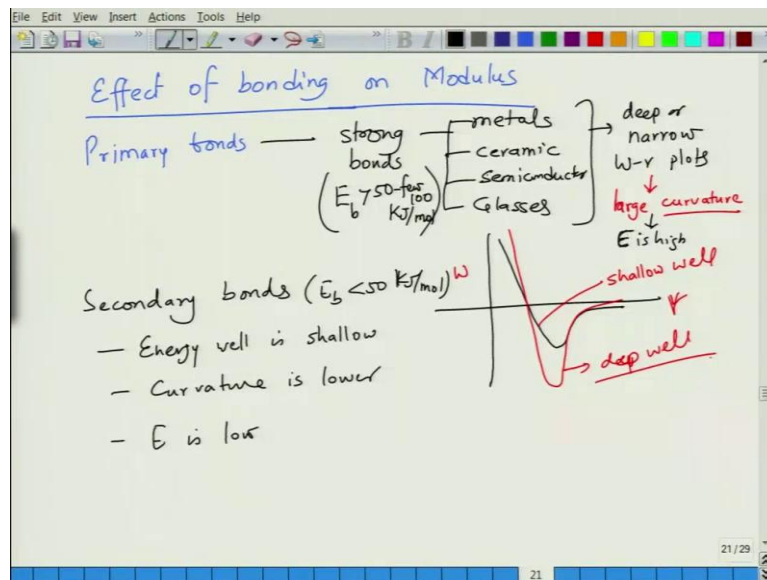 File Edit View Insert Actions Tools Help
Effect of bonding on Modulus
Primary bonds — strong bonds
(E_b > 50 - few 100 KJ/mol)
metals
ceramic
Semiconductor
Glasses
deep or
narrow
W-r plots
large curvature
E is high
Secondary bonds (E_b < 50 KJ/mol)
— Energy well is shallow
— Curvature is lower
— E is low
W
shallow well
r
deep well
21/29
21